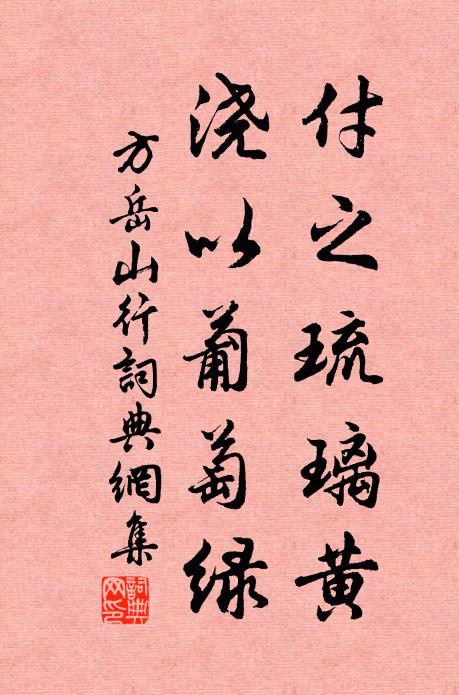 付之琉璃黄
浇以葡萄绿
方岳山行詞典網集
詞典网印